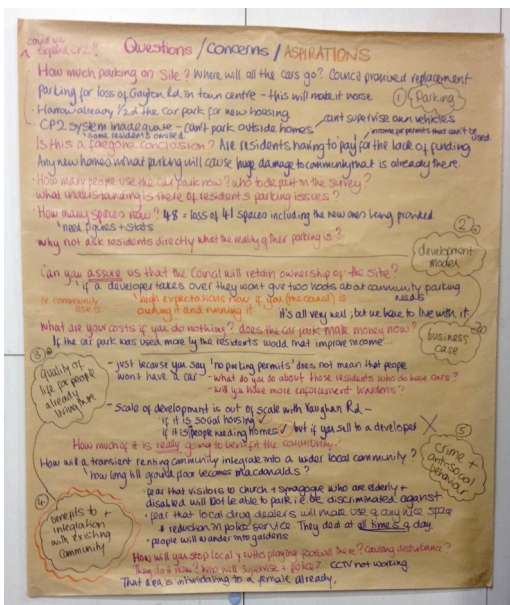 could you
expand CP2?
Questions / Concerns / ASPIRATIONS
How much parking on site? Where will all the cars go? Council promised replacement
parking for loss of Gayton Rd in town centre - this will make it worse
① Parking
Harrow already 1/2d the car park for new housing
can't supervise own vehicles
CP2 system inadequate - can't park outside homes
income for permits that can't be used
some residents omitted
Is this a foregone conclusion? Are residents having to pay for the lack of funding
Any new homes without parking will cause huge damage to community that is already there.
How many people use the car park now? Who took part in the survey?
What understanding is there of resident's parking issues?
How many spaces now? 48 = loss of 41 spaces including the new ones being provided
'need figures + stats
Why not ask residents directly what the reality of their parking is?
2
development model
Can you assure us that the Council will retain ownership of the site?
'if a developer takes over they won't give two hoots about community parking
needs
re community uses
'high expectations now if you (the council) is
owning it and running it'
it's all very well, but we have to live with it.
What are your costs if you do nothing? does the car park make money now?
If the car park was used more by the residents would that improve income...
business case
3
quality of life for people already living there
- just because you say 'no parking permits' does not mean that people
won't have a car - what do you do about those residents who do have cars?
- will you have more enforcement wardens?
- Scale of development is out of scale with Vaughan Rd -
if it is social housing ✓
if it is/people needing homes ✓ but if you sell to a developer X
How much of it is really going to benefit the community?
5
crime + anti-social behaviour
How will a transient renting community integrate into a wider local community?
'how long till ground floor becomes macdonalds?
4
benefits to + integration with existing community
· fear that visitors to church + synagogue who are elderly +
disabled will not be able to park i.e. be discriminated against
· fear that local drug dealers will make use of any nice space
+ reduction in police service. They deal at all times of day.
· people will wander into gardens
How will you stop local youths playing football there? causing disturbance?
They do it now? Who will supervise + police? CCTV not working
That area is intimidating to a female already.